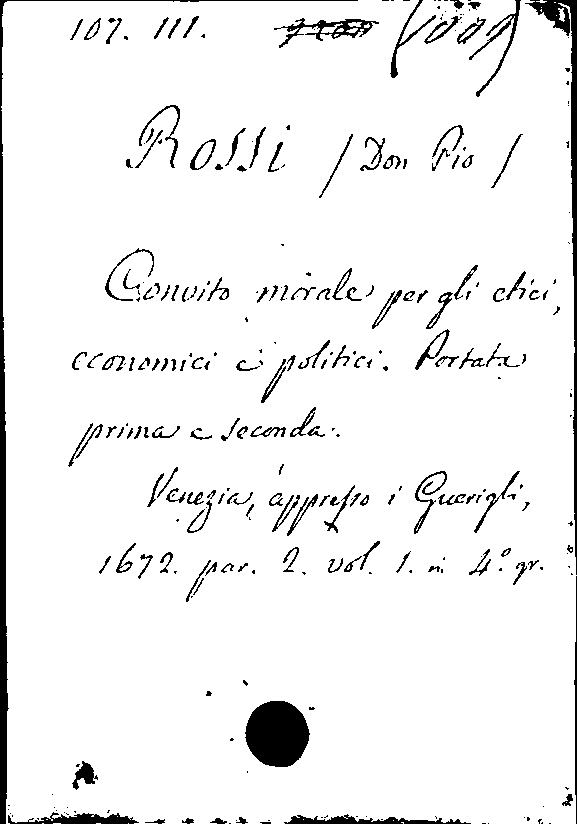 107. III. (1009)
ROSSI / Don Pio /
Convito morale per gli etici,
economici e politici. Portata
prima e seconda.
Venezia, appresso i Guerigli,
1672. par. 2. vol. 1. in 4.º gr.